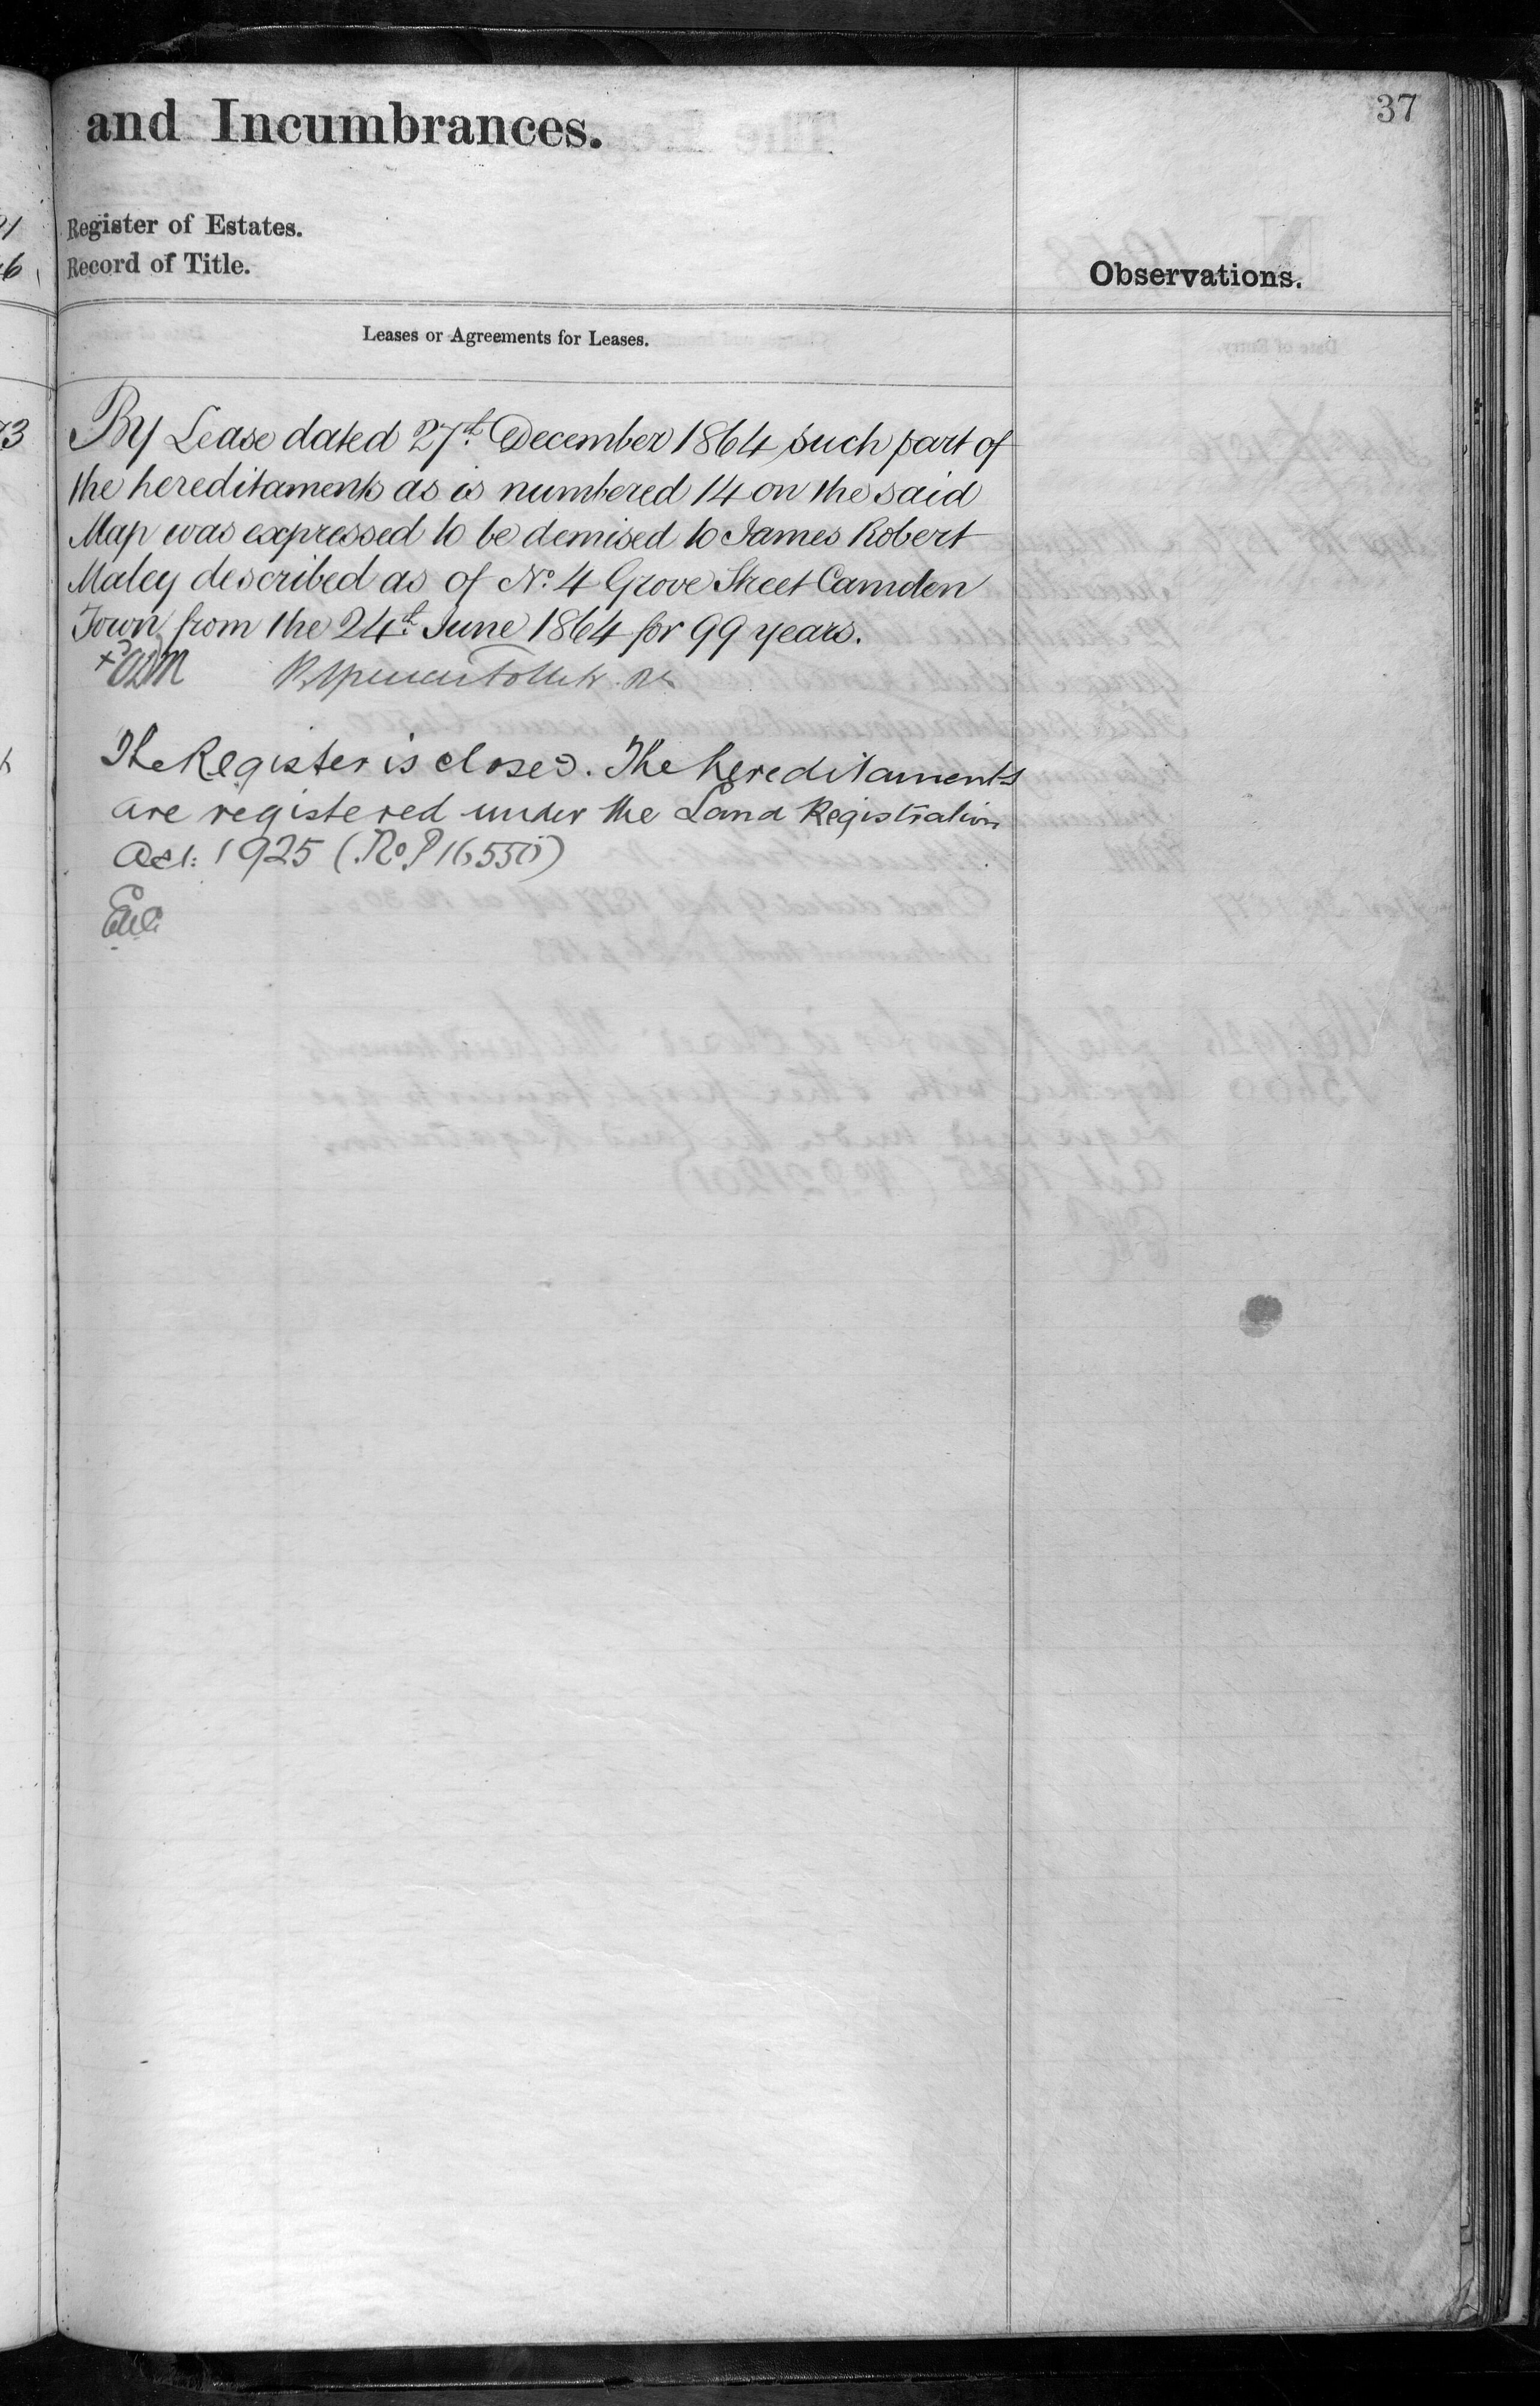 37
and Incumbrances.
Register of Estates.
Record of Title.
Observations.
Leases or Agreements for Leases.
By Lease dated 27th December 1864 such part of
the hereditaments as is numbered 14 on the said
Map was expressed to be demised to James Robert
Maley described as of No. 4 Grove Street Camden
Town from the 24th June 1864 for 99 years.
The Register is closed. The hereditaments
are registered under the Land Registration
Act: 1925 (No. P 16550)